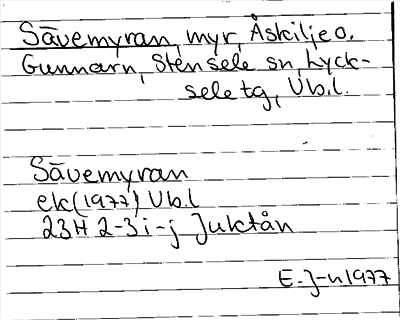 Sävemyran, myr, Åskilje o.
Gunnarn, Stensele sn, Lyck-
sele tg, Vb.l.
Sävemyran
ek (1977) Vb.l
23H 2-3 i-j Juktån
E. J-n 1977